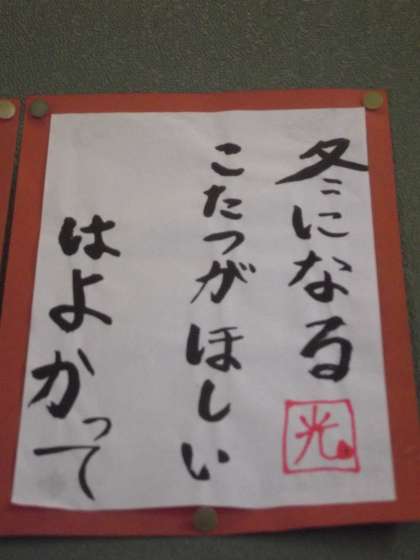 冬になる
光
こたつがほしい
はよかって